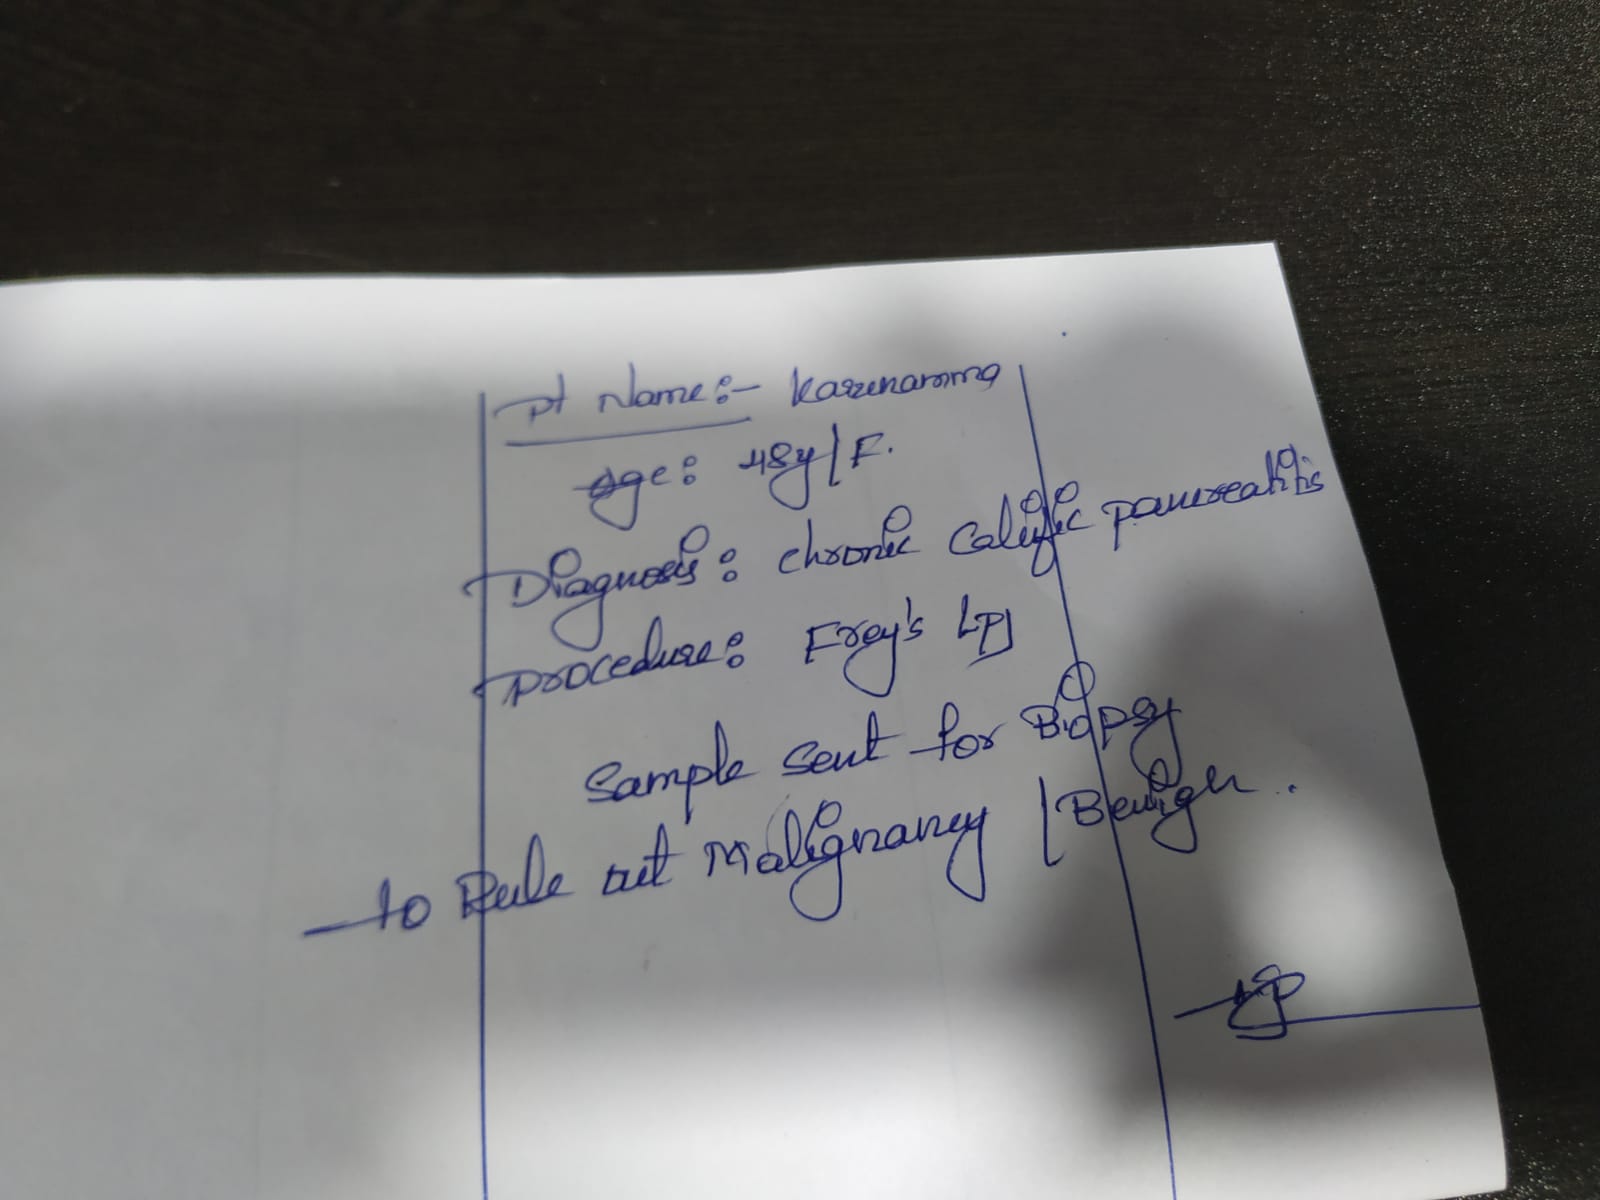 pt Name:- Karunamma
Age: 48y/F.
Diagnosis: chronic Calcific pancreatitis
procedure: Frey's LPJ
Sample sent for Biopsy
to Rule out Malignancy / Benign.